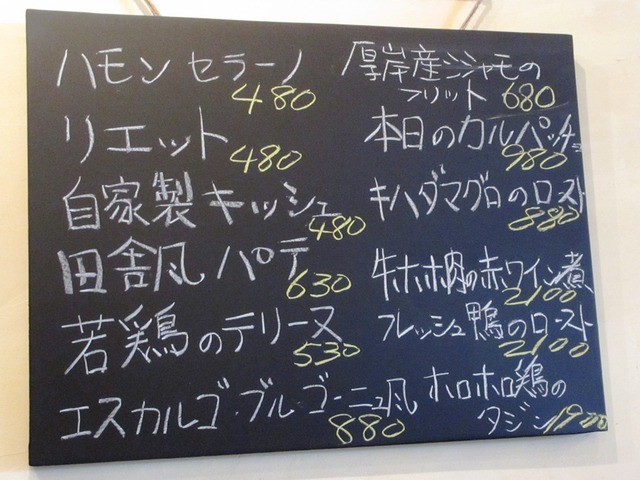 ハモン セラーノ
480
リエット
480
自家製キッシュ
480
田舎風パテ
630
若鶏のテリーヌ
530
エスカルゴ・ブルゴーニュ風
880
厚岸産シシャモの
フリット 680
本日のカルパッチョ
980
キハダマグロのロスト
880
牛ホホ肉の赤ワイン煮
2100
フレッシュ鴨のロースト
2100
ホロホロ鶏の
タジン 1900